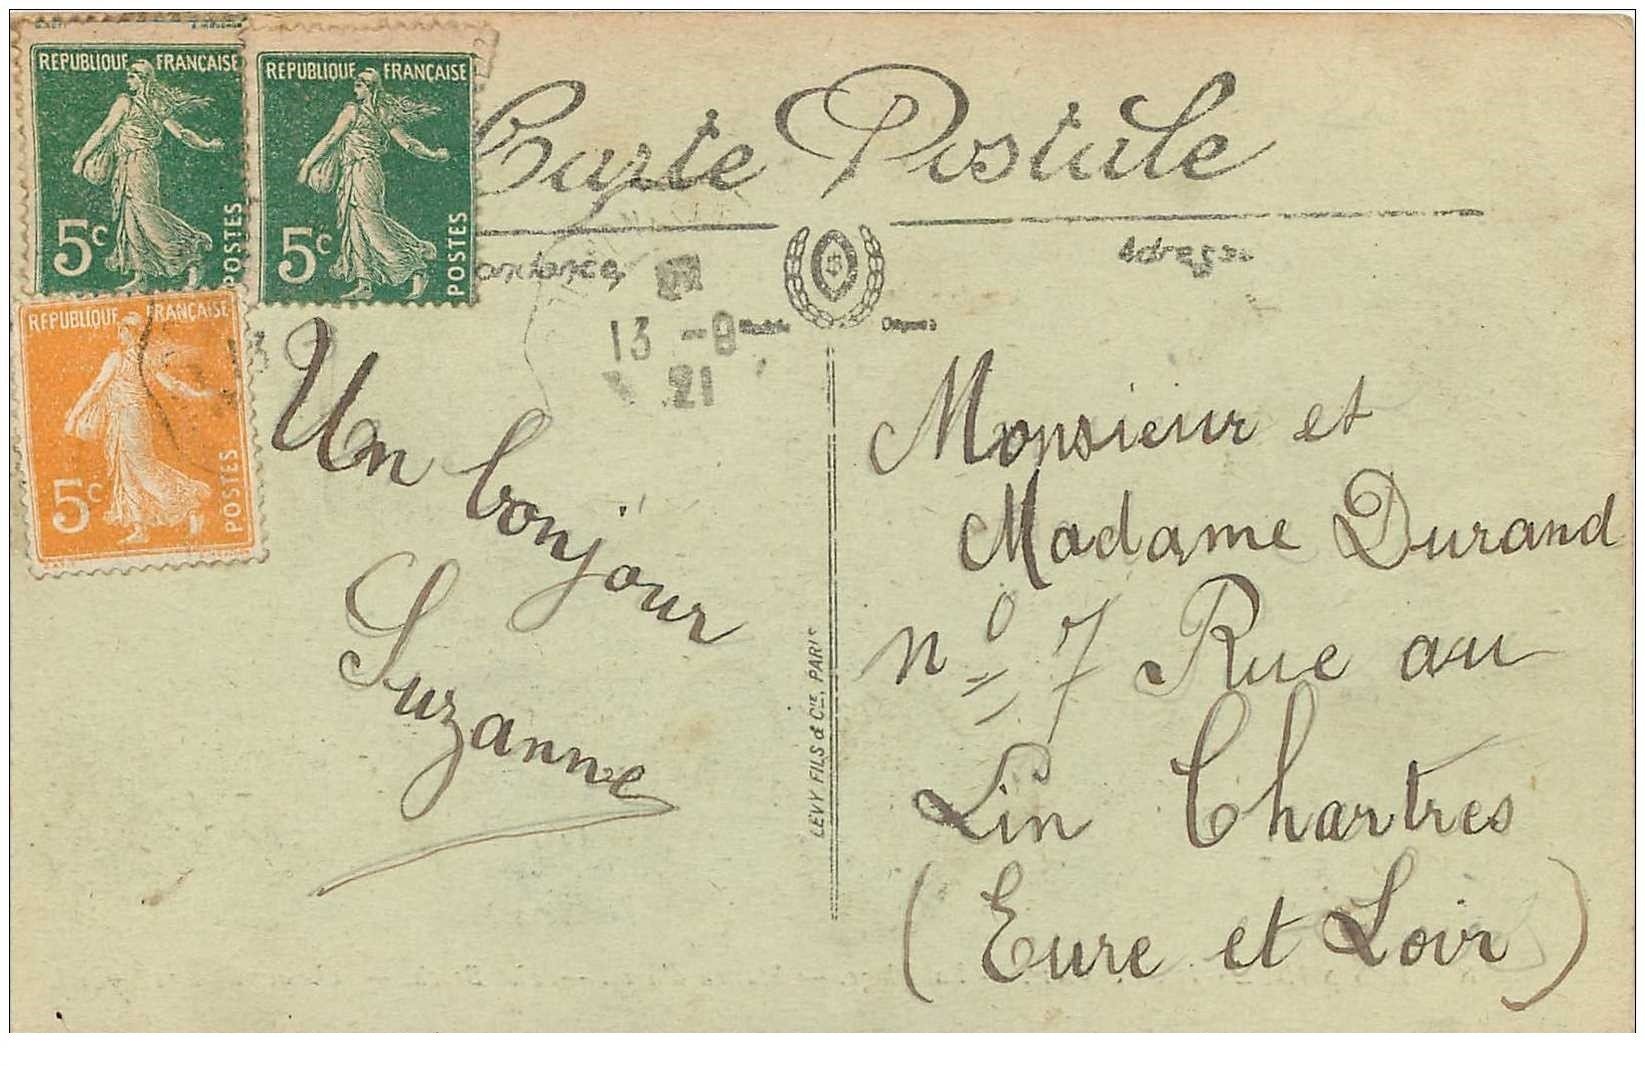 REPUBLIQUE FRANÇAISE
5c
POSTES
REPUBLIQUE FRANÇAISE
5c
POSTES
REPUBLIQUE FRANÇAISE
5c
POSTES
Carte Postale
ondance
Adresse
13 -8
21
Modèle Déposé
Un bonjour
Suzanne
LEVY FILS & CIE, PARIS
Monsieur et
Madame Durand
no 7 Rue au
Lin Chartres
(Eure et Loir)